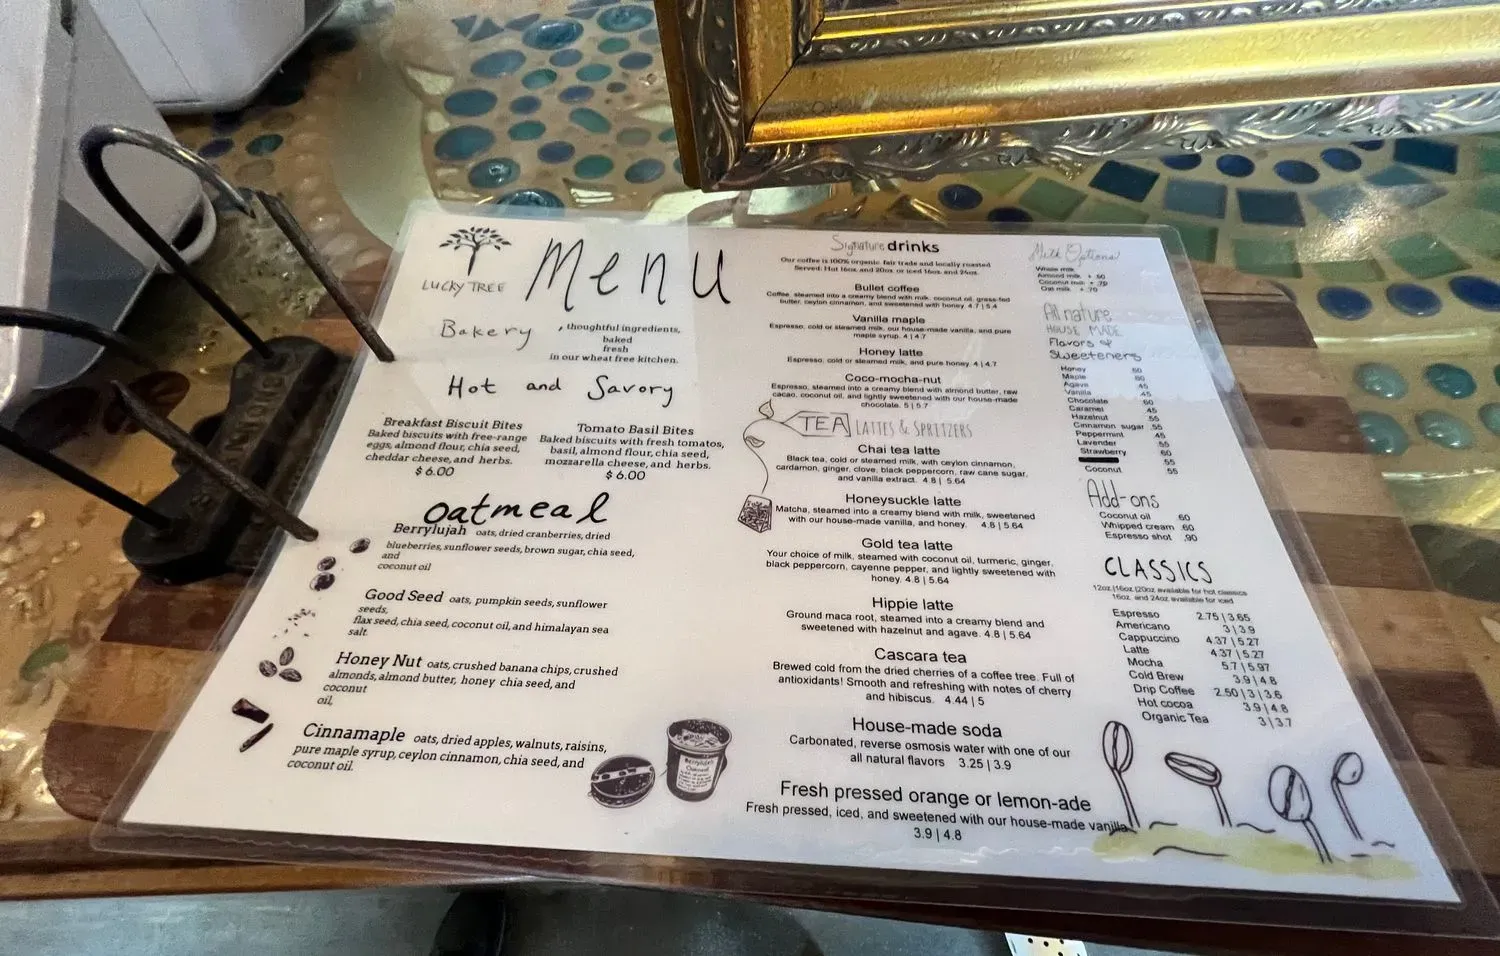 LUCKY TREE
Menu
Bakery , thoughtful ingredients,
baked
fresh
in our wheat free kitchen.
Hot and Savory
Breakfast Biscuit Bites
Baked biscuits with free-range
eggs, almond flour, chia seed,
cheddar cheese, and herbs.
$ 6.00
Tomato Basil Bites
Baked biscuits with fresh tomatos,
basil, almond flour, chia seed,
mozzarella cheese, and herbs.
$ 6.00
oatmeal
Berrylujah oats, dried cranberries, dried
blueberries, sunflower seeds, brown sugar, chia seed,
and
coconut oil
Good Seed oats, pumpkin seeds, sunflower
seeds,
flax seed, chia seed, coconut oil, and himalayan sea
salt.
Honey Nut oats, crushed banana chips, crushed
almonds, almond butter, honey chia seed, and
coconut
oil,
Cinnamaple oats, dried apples, walnuts, raisins,
pure maple syrup, ceylon cinnamon, chia seed, and
coconut oil.
Signature drinks
Our coffee is 100% organic fair trade and locally roasted
Served: Hot 16oz and 20oz or iced 16oz and 24oz.
Bullet coffee
Coffee, steamed into a creamy blend with milk, coconut oil, grass-fed
butter, ceylon cinnamon, and sweetened with honey. 4.7 | 5.4
Vanilla maple
Espresso, cold or steamed milk, our house-made vanilla, and pure
maple syrup. 4 | 4.7
Honey latte
Espresso, cold or steamed milk, and pure honey. 4 | 4.7
Coco-mocha-nut
Espresso, steamed into a creamy blend with almond butter, raw
cacao, coconut oil, and lightly sweetened with our house-made
chocolate. 5 | 5.7
TEA LATTES & SPRITZERS
Chai tea latte
Black tea, cold or steamed milk, with ceylon cinnamon,
cardamon, ginger, clove, black peppercorn, raw cane sugar,
and vanilla extract. 4.8 | 5.64
Honeysuckle latte
Matcha, steamed into a creamy blend with milk, sweetened
with our house-made vanilla, and honey. 4.8 | 5.64
Gold tea latte
Your choice of milk, steamed with coconut oil, turmeric, ginger,
black peppercorn, cayenne pepper, and lightly sweetened with
honey. 4.8 | 5.64
Hippie latte
Ground maca root, steamed into a creamy blend and
sweetened with hazelnut and agave. 4.8 | 5.64
Cascara tea
Brewed cold from the dried cherries of a coffee tree. Full of
antioxidants! Smooth and refreshing with notes of cherry
and hibiscus. 4.44 | 5
House-made soda
Carbonated, reverse osmosis water with one of our
all natural flavors 3.25 | 3.9
Fresh pressed orange or lemon-ade
Fresh pressed, iced, and sweetened with our house-made vanilla
3.9 | 4.8
Milk Options
Whole milk
Almond milk + .60
Coconut milk + .70
Oat milk + .70
All nature
HOUSE MADE
Flavors &
Sweeteners
Honey 60
Maple 60
Agave 45
Vanilla 45
Chocolate 60
Caramel 45
Hazelnut 55
Cinnamon sugar .55
Peppermint 45
Lavender .55
Strawberry 60
.55
Coconut 55
Add-ons
Coconut oil .60
Whipped cream .60
Espresso shot .90
CLASSICS
12oz |16oz |20oz available for hot classics
16oz. and 24oz available for iced
Espresso 2.75 | 3.65
Americano 3 | 3.9
Cappuccino 4.37 | 5.27
Latte 4.37 | 5.27
Mocha 5.7 | 5.97
Cold Brew 3.9 | 4.8
Drip Coffee 2.50 | 3 | 3.6
Hot cocoa 3.9 | 4.8
Organic Tea 3 | 3.7